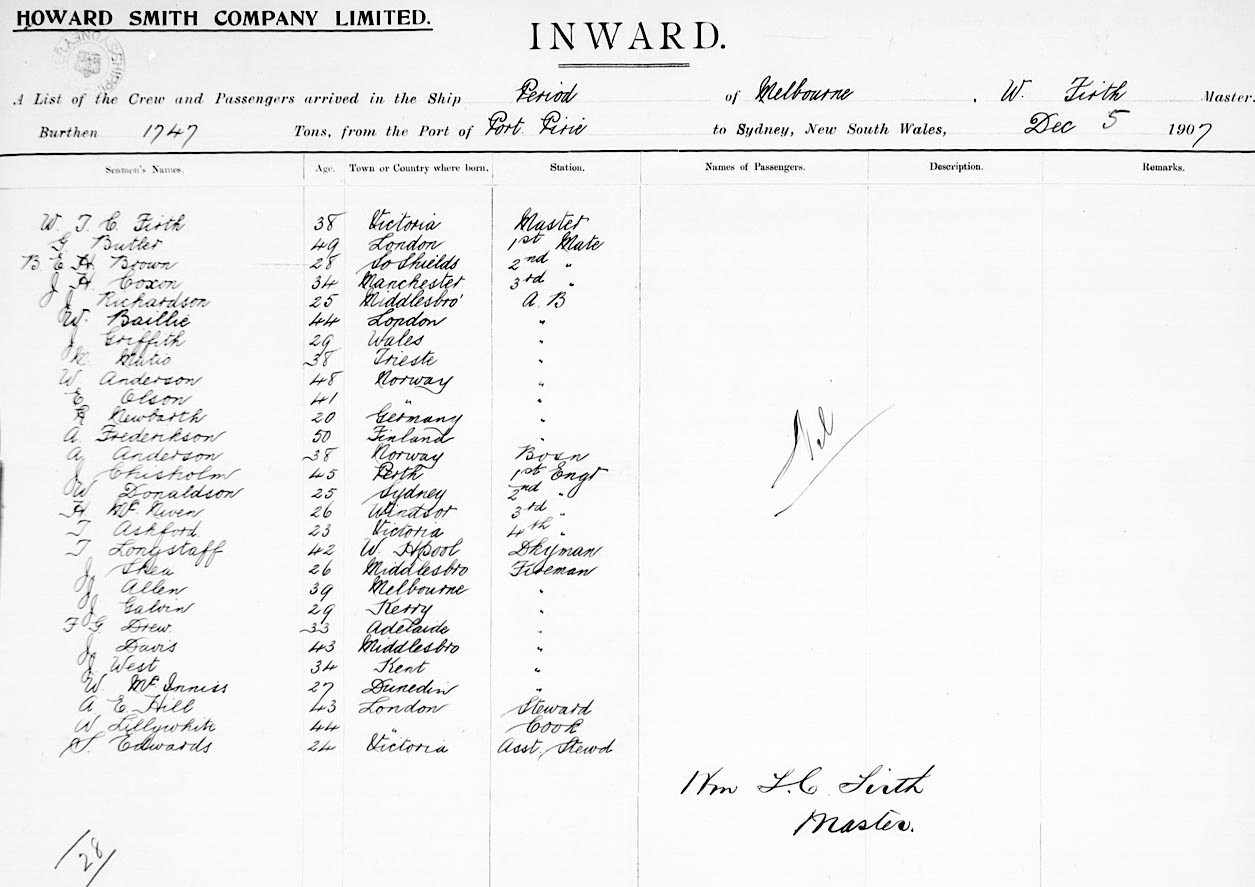 HOWARD SMITH COMPANY LIMITED.
INWARD.
A List of the Crew and Passengers arrived in the Ship Period of Melbourne, W. Firth Master.
Burthen 1747 Tons, from the Port of Port Pirie to Sydney, New South Wales, Dec 5 1907
Seamen's Names. Age. Town or Country where born. Station. Names of Passengers. Description. Remarks.
W. T. C. Firth 38 Victoria Master
G Butler 49 London 1st Mate
B. E H. Brown 28 So Shields 2nd "
J H. Coxon 34 Manchester 3rd "
J Richardson 25 Middlesbro' A. B
W. Baillie 44 London "
J Griffith 29 Wales "
Matio 38 Trieste "
W Anderson 48 Norway "
E Olson 41 " "
Newbarth 20 Germany "
A. Frederikson 50 Finland "
A Anderson 38 Norway Bosn
J Chisholm 45 Perth 1st Engr
W Donaldson 25 Sydney 2nd "
H McNiven 26 Windsor 3rd "
T Ashford. 23 Victoria 4th "
T Longstaff 42 W. Hpool Dkyman
J Shea 26 Middlesbro Fireman
J Allen 39 Melbourne "
J Galvin 29 Kerry "
F G. Drew. 33 Adelaide "
J Davis 43 Middlesbro "
J West 34 Kent "
W. McInniss 27 Dunedin "
A E Hill 43 London Steward
W Lillywhite 44 " Cook
S. Edwards 24 Victoria Asst. Stewd
Nil
Wm T. C. Firth
Master.
28